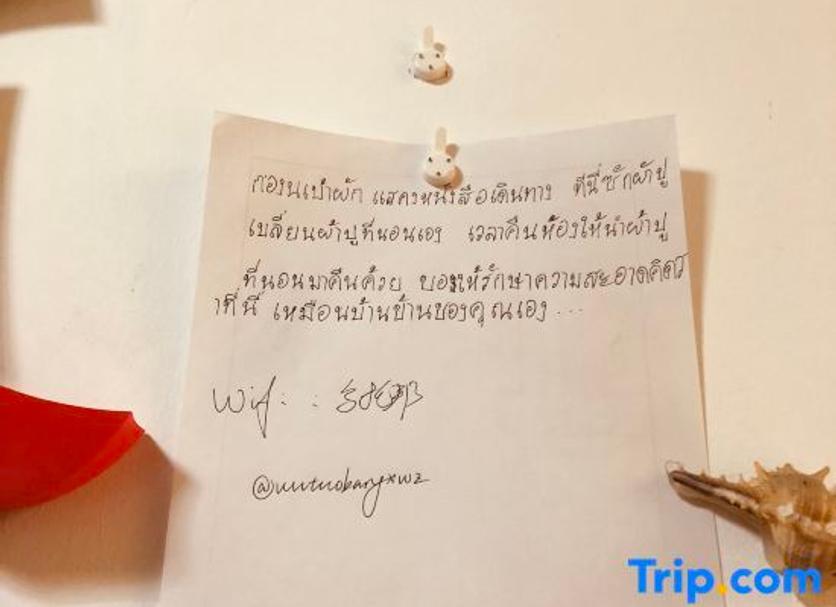 ก่อนเข้าพัก แสดงหนังสือเดินทาง ที่นี่ซักผ้าปู
เปลี่ยนผ้าปูที่นอนเอง เวลาคืนห้องให้นำผ้าปู
ที่นอนมาคืนด้วย ขอให้รักษาความสะอาดคิดว
่าที่นี่ เหมือนบ้านบ้านของคุณเอง ...
Wifi :
Trip.com